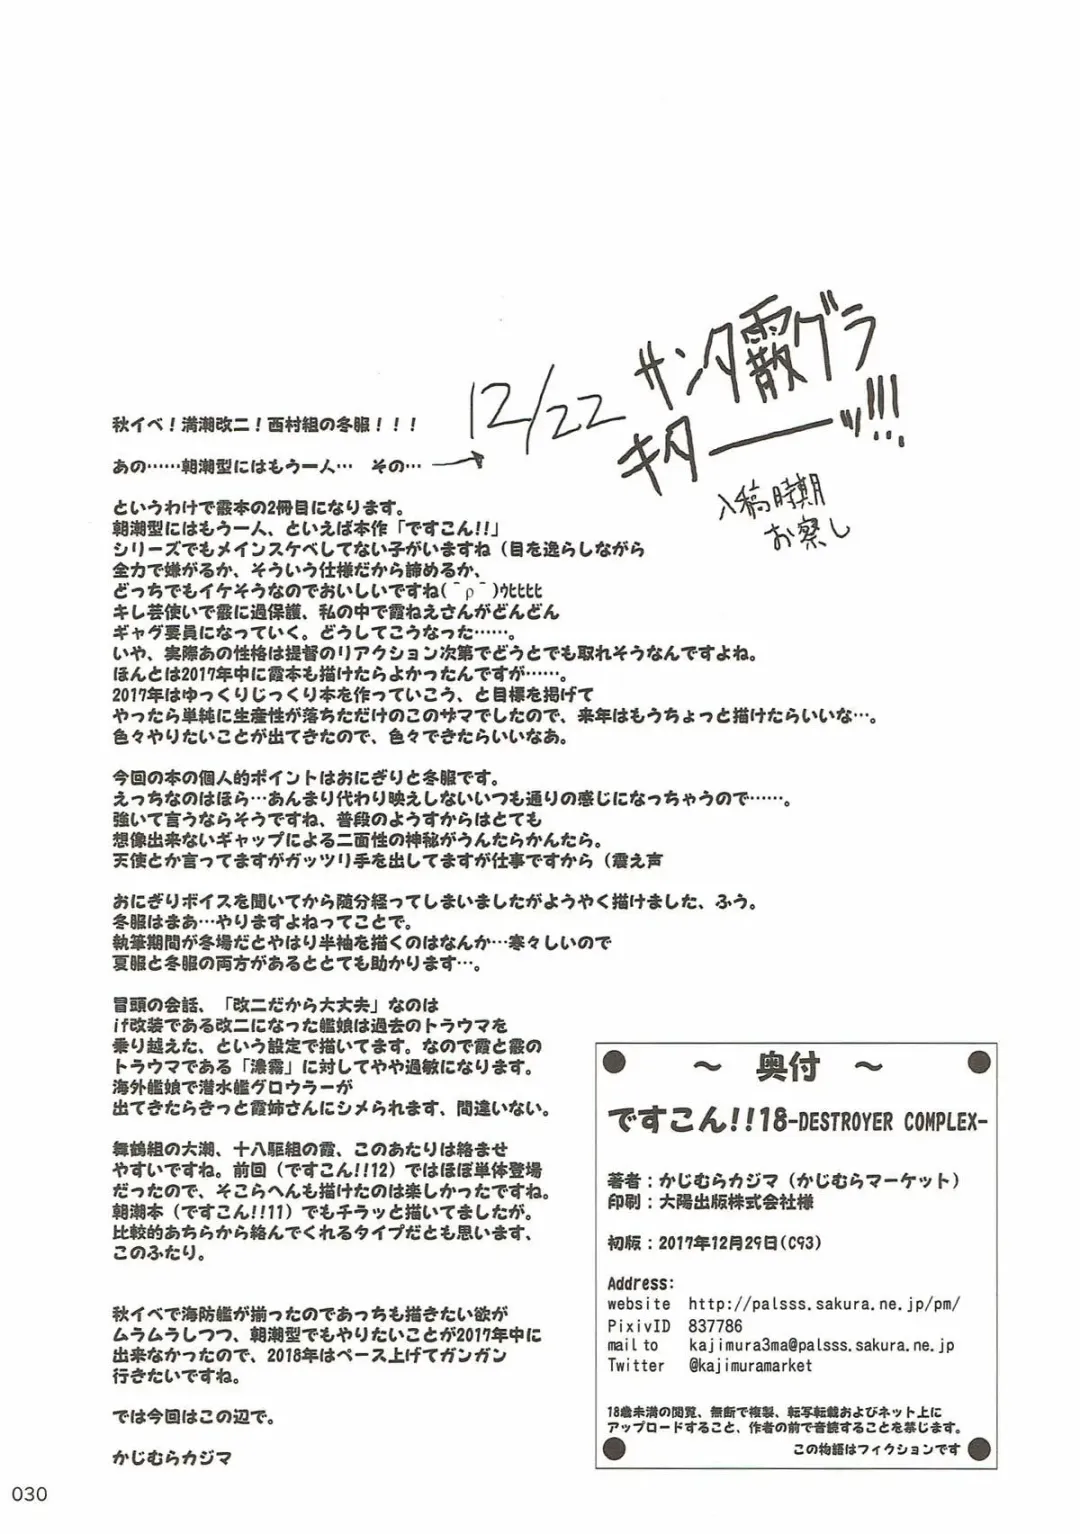 12/22
サンタ霰グラ
キターーッ!!!
入稿時期
お察し
秋イベ！満潮改二！西村組の冬服！！！
あの……朝潮型にはもう一人… その…
というわけで霰本の2冊目になります。
朝潮型にはもう一人、といえば本作「ですこん!!」
シリーズでもメインスケベしてない子がいますね（目を逸らしながら
全力で嫌がるか、そういう仕様だから諦めるか、
どっちでもイケそうなのでおいしいですね(¯ρ¯)ｳﾋﾋﾋﾋ
キレ芸使いで霰に過保護、私の中で霞ねえさんがどんどん
ギャグ要員になっていく。どうしてこうなった……。
いや、実際あの性格は提督のリアクション次第でどうとでも取れそうなんですよね。
ほんとは2017年中に霞本も描けたらよかったんですが……。
2017年はゆっくりじっくり本を作っていこう、と目標を掲げて
やったら単純に生産性が落ちただけのこのザマでしたので、来年はもうちょっと描けたらいいな…。
色々やりたいことが出てきたので、色々できたらいいなあ。
今回の本の個人的ポイントはおにぎりと冬服です。
えっちなのはほら…あんまり代わり映えしないいつも通りの感じになっちゃうので……。
強いて言うならそうですね、普段のようすからはとても
想像出来ないギャップによる二面性の神秘がうんたらかんたら。
天使とか言ってますがガッツリ手を出してますが仕事ですから（震え声
おにぎりボイスを聞いてから随分経ってしまいましたがようやく描けました、ふう。
冬服はまあ…やりますよねってことで。
執筆期間が冬場だとやはり半袖を描くのはなんか…寒々しいので
夏服と冬服の両方があるととても助かります…。
冒頭の会話、「改二だから大丈夫」なのは
if改装である改二になった艦娘は過去のトラウマを
乗り越えた、という設定で描いてます。なので霞と霰の
トラウマである「濃霧」に対してやや過敏になります。
海外艦娘で潜水艦グロウラーが
出てきたらきっと霞姉さんにシメられます、間違いない。
舞鶴組の大潮、十八駆組の霞、このあたりは絡ませ
やすいですね。前回（ですこん!!12）ではほぼ単体登場
だったので、そこらへんも描けたのは楽しかったですね。
朝潮本（ですこん!!11）でもチラッと描いてましたが。
比較的あちらから絡んでくれるタイプだとも思います、
このふたり。
秋イベで海防艦が揃ったのであっちも描きたい欲が
ムラムラしつつ、朝潮型でもやりたいことが2017年中に
出来なかったので、2018年はペース上げてガンガン
行きたいですね。
では今回はこの辺で。
かじむらカジマ
～ 奥付 ～
ですこん!!18-DESTROYER COMPLEX-
著者：かじむらカジマ（かじむらマーケット）
印刷：大陽出版株式会社様
初版：2017年12月29日(C93)
Address:
website http://palsss.sakura.ne.jp/pm/
PixivID 837786
mail to kajimura3ma@palsss.sakura.ne.jp
Twitter @kajimuramarket
18歳未満の閲覧、無断で複製、転写転載およびネット上に
アップロードすること、作者の前で音読することを禁じます。
この物語はフィクションです
030